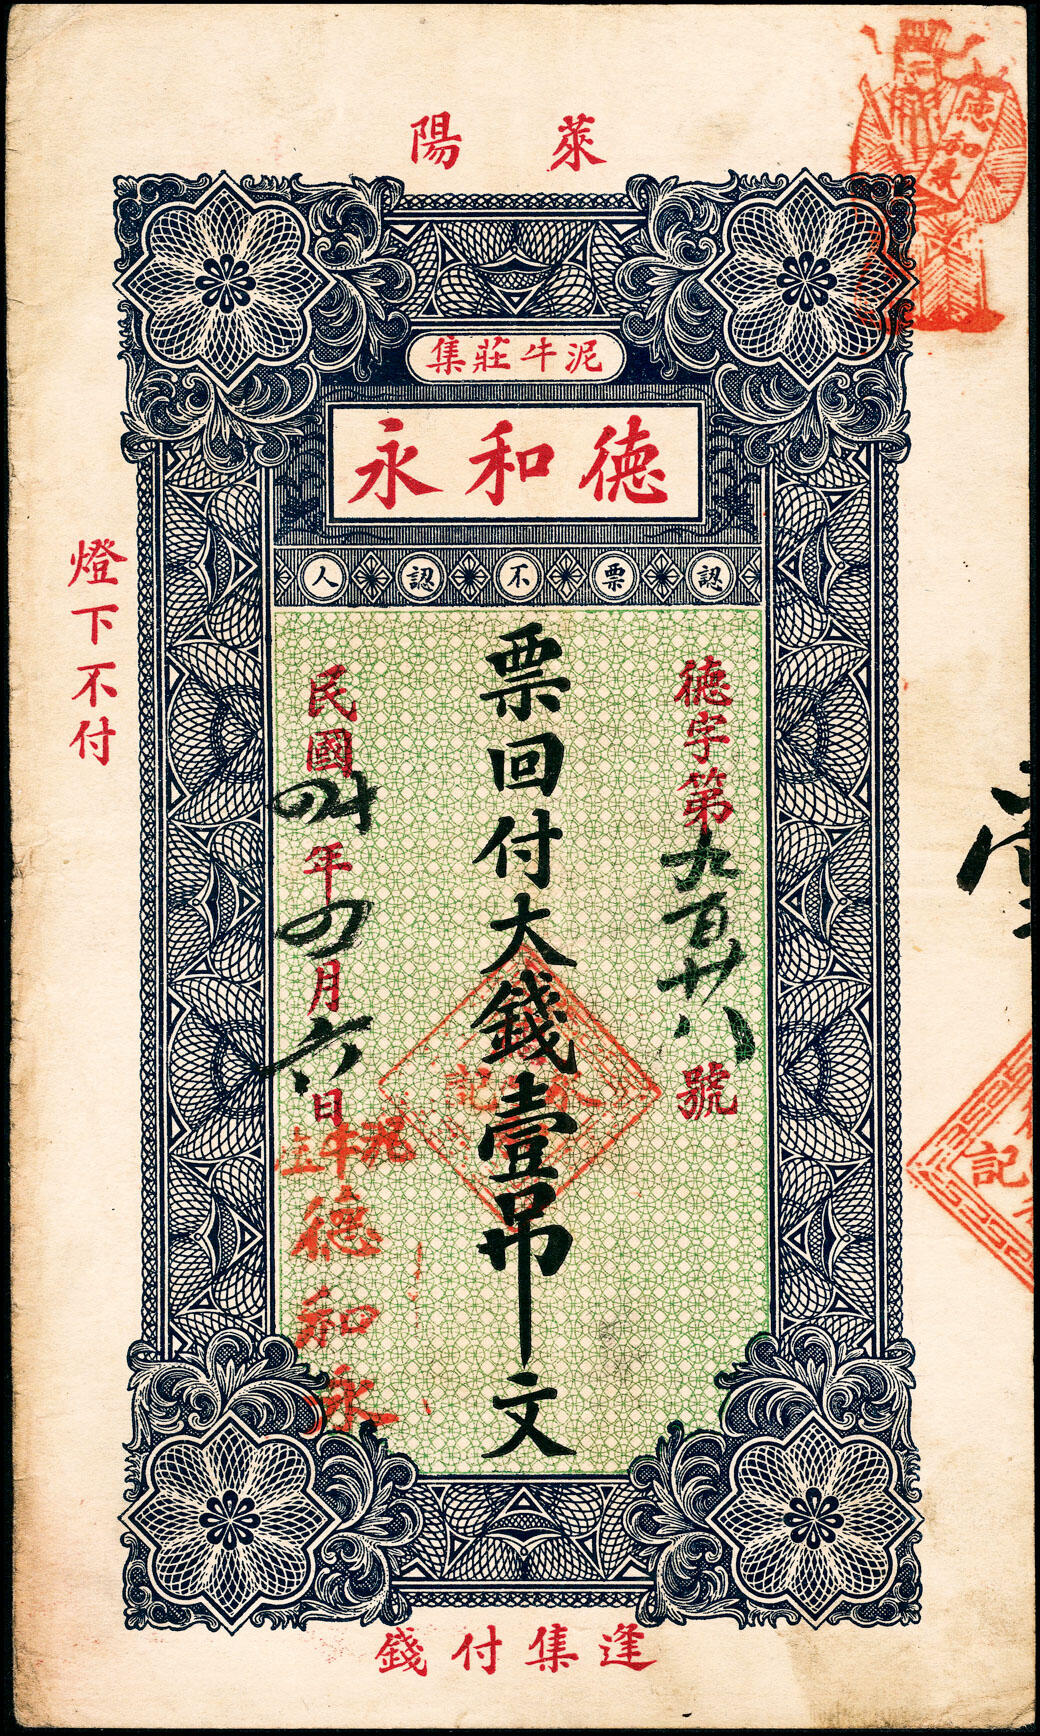 萊陽
德和永
泥牛莊集
德和永
認票不認人
德字第九百廿八號
票回付大錢壹吊文
民國四年四月六日
泥牛莊
德和永
燈下不付
逢集付錢
記
記